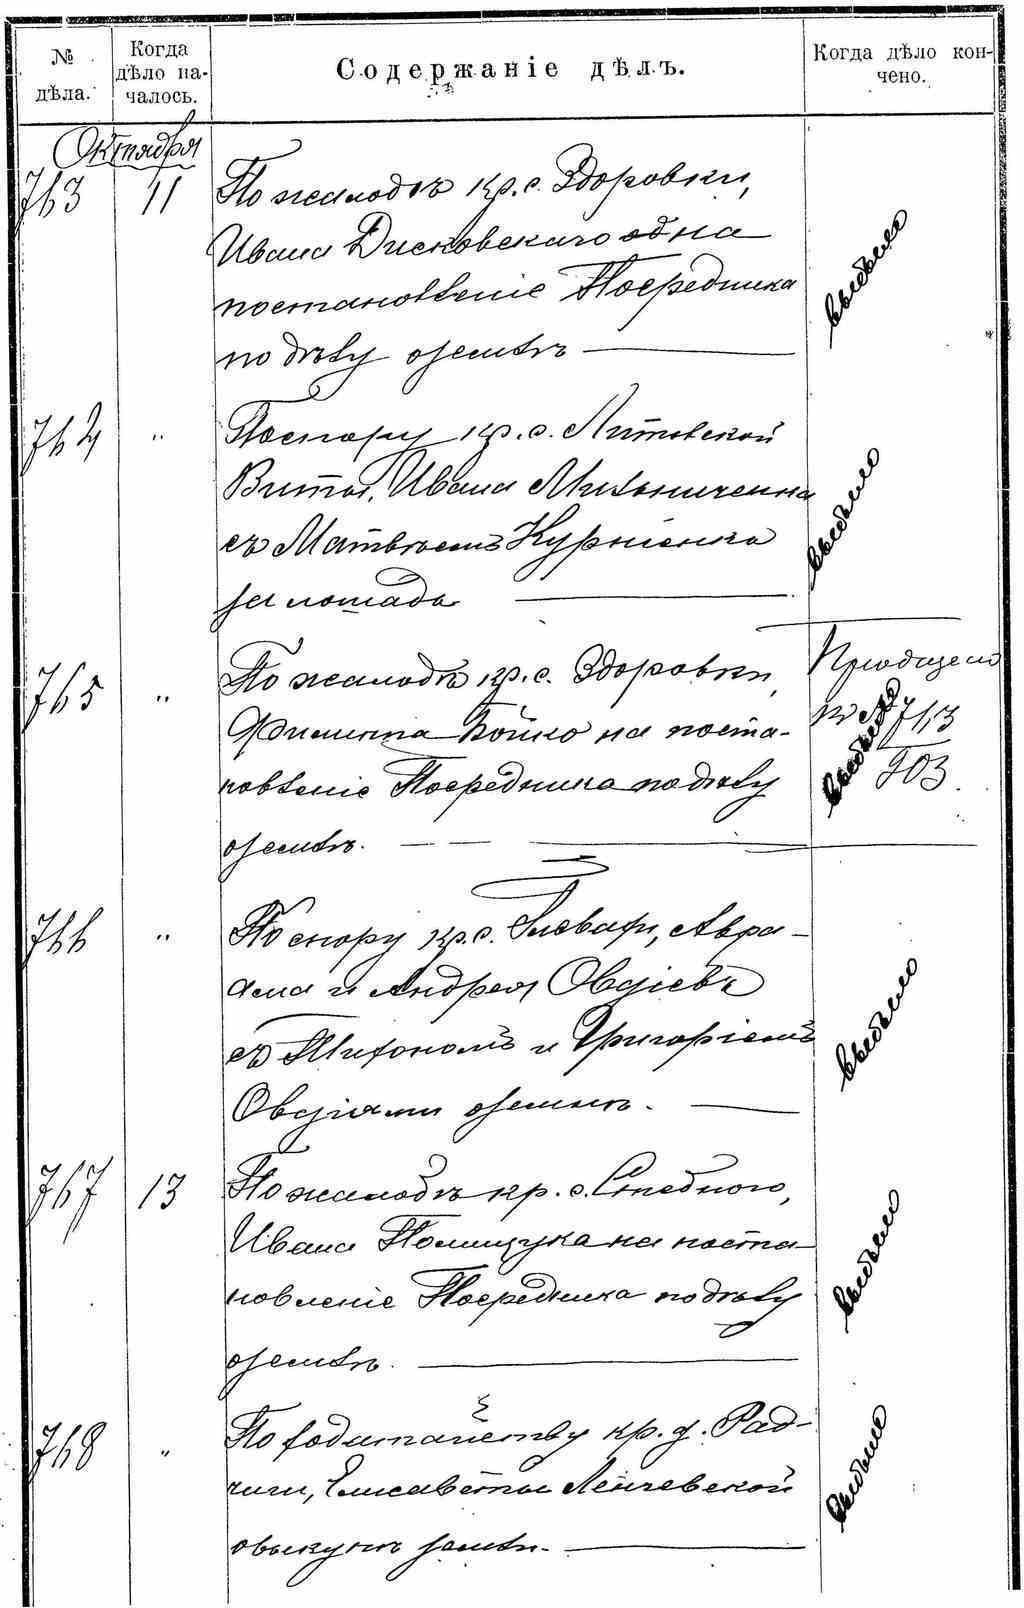 № дѣла.
Когда дѣло на-
чалось.
Содержаніе дѣлъ.
Когда дѣло кон-
чено.
Октября
763 11 По жалобѣ кр. с. Здоровки,
Ивана на
постановленіе Посредника
по дѣлу о землѣ
выбыло
764 " По спору кр. с. Литовской
Виты, Ивана Мельниченка
съ Матвѣемъ Курпіенко
за лошадь
выбыло
765 " По жалобѣ кр. с. Здоровки,
Филиппа Бойко на поста-
новленіе Посредника по дѣлу
о землѣ.
Пріобщено
къ № 713
903
выбыло
766 " По спору кр. с. Глевахи, Авра-
ама и Андрея Овдіевъ
съ Тихономъ и Григоріемъ
Овдіями о землѣ.
выбыло
767 13 По жалобѣ кр. с.
Ивана Полищука на поста-
новленіе Посредника по дѣлу
о землѣ.
выбыло
768 " По ходатайству кр. д. Рад-
чичи, Елисаветы Ленчевской
о выкупѣ земли.
выбыло